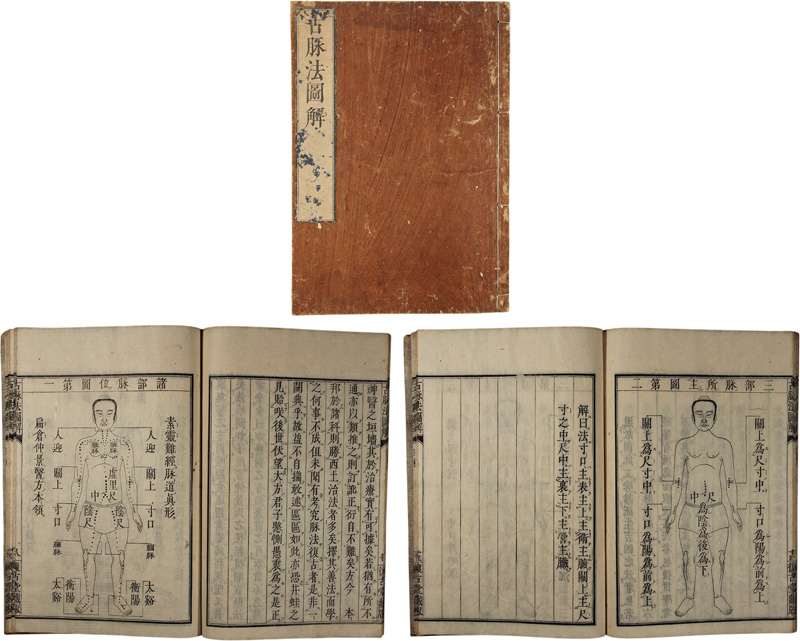 古脉法圖解
諸部脉位圖第一
素靈難經脉道真形
人迎
關上
寸口
太谿
衝陽
虛里
中
尺
陰
尺
陰
尺
人迎
關上
寸口
太谿
衝陽
扁倉仲景醫方本領
神醫之垣墻其於治療實有可據矣若猶有所不
通亦以類推之則訂訛正衍自不難矣方今 本
邦於諸科則勝西土治法者多矣擇其善法而學
之何事不成但未聞有考究脉法復古者是非一
闕典乎故雄不自揣敢述區區如此亦恐井蛙之
見貽咲後世伏望大方君子愍惻愚衷爲之是正
三部脉所主圖第二
關上爲尺寸中
寸口爲陽爲前爲上
中
尺爲陰爲後爲下
關上爲尺寸中
寸口爲陽爲前爲上
解曰法寸口主表主上主衛主腑關上主尺
寸之中尺中主裏主下主營主臟